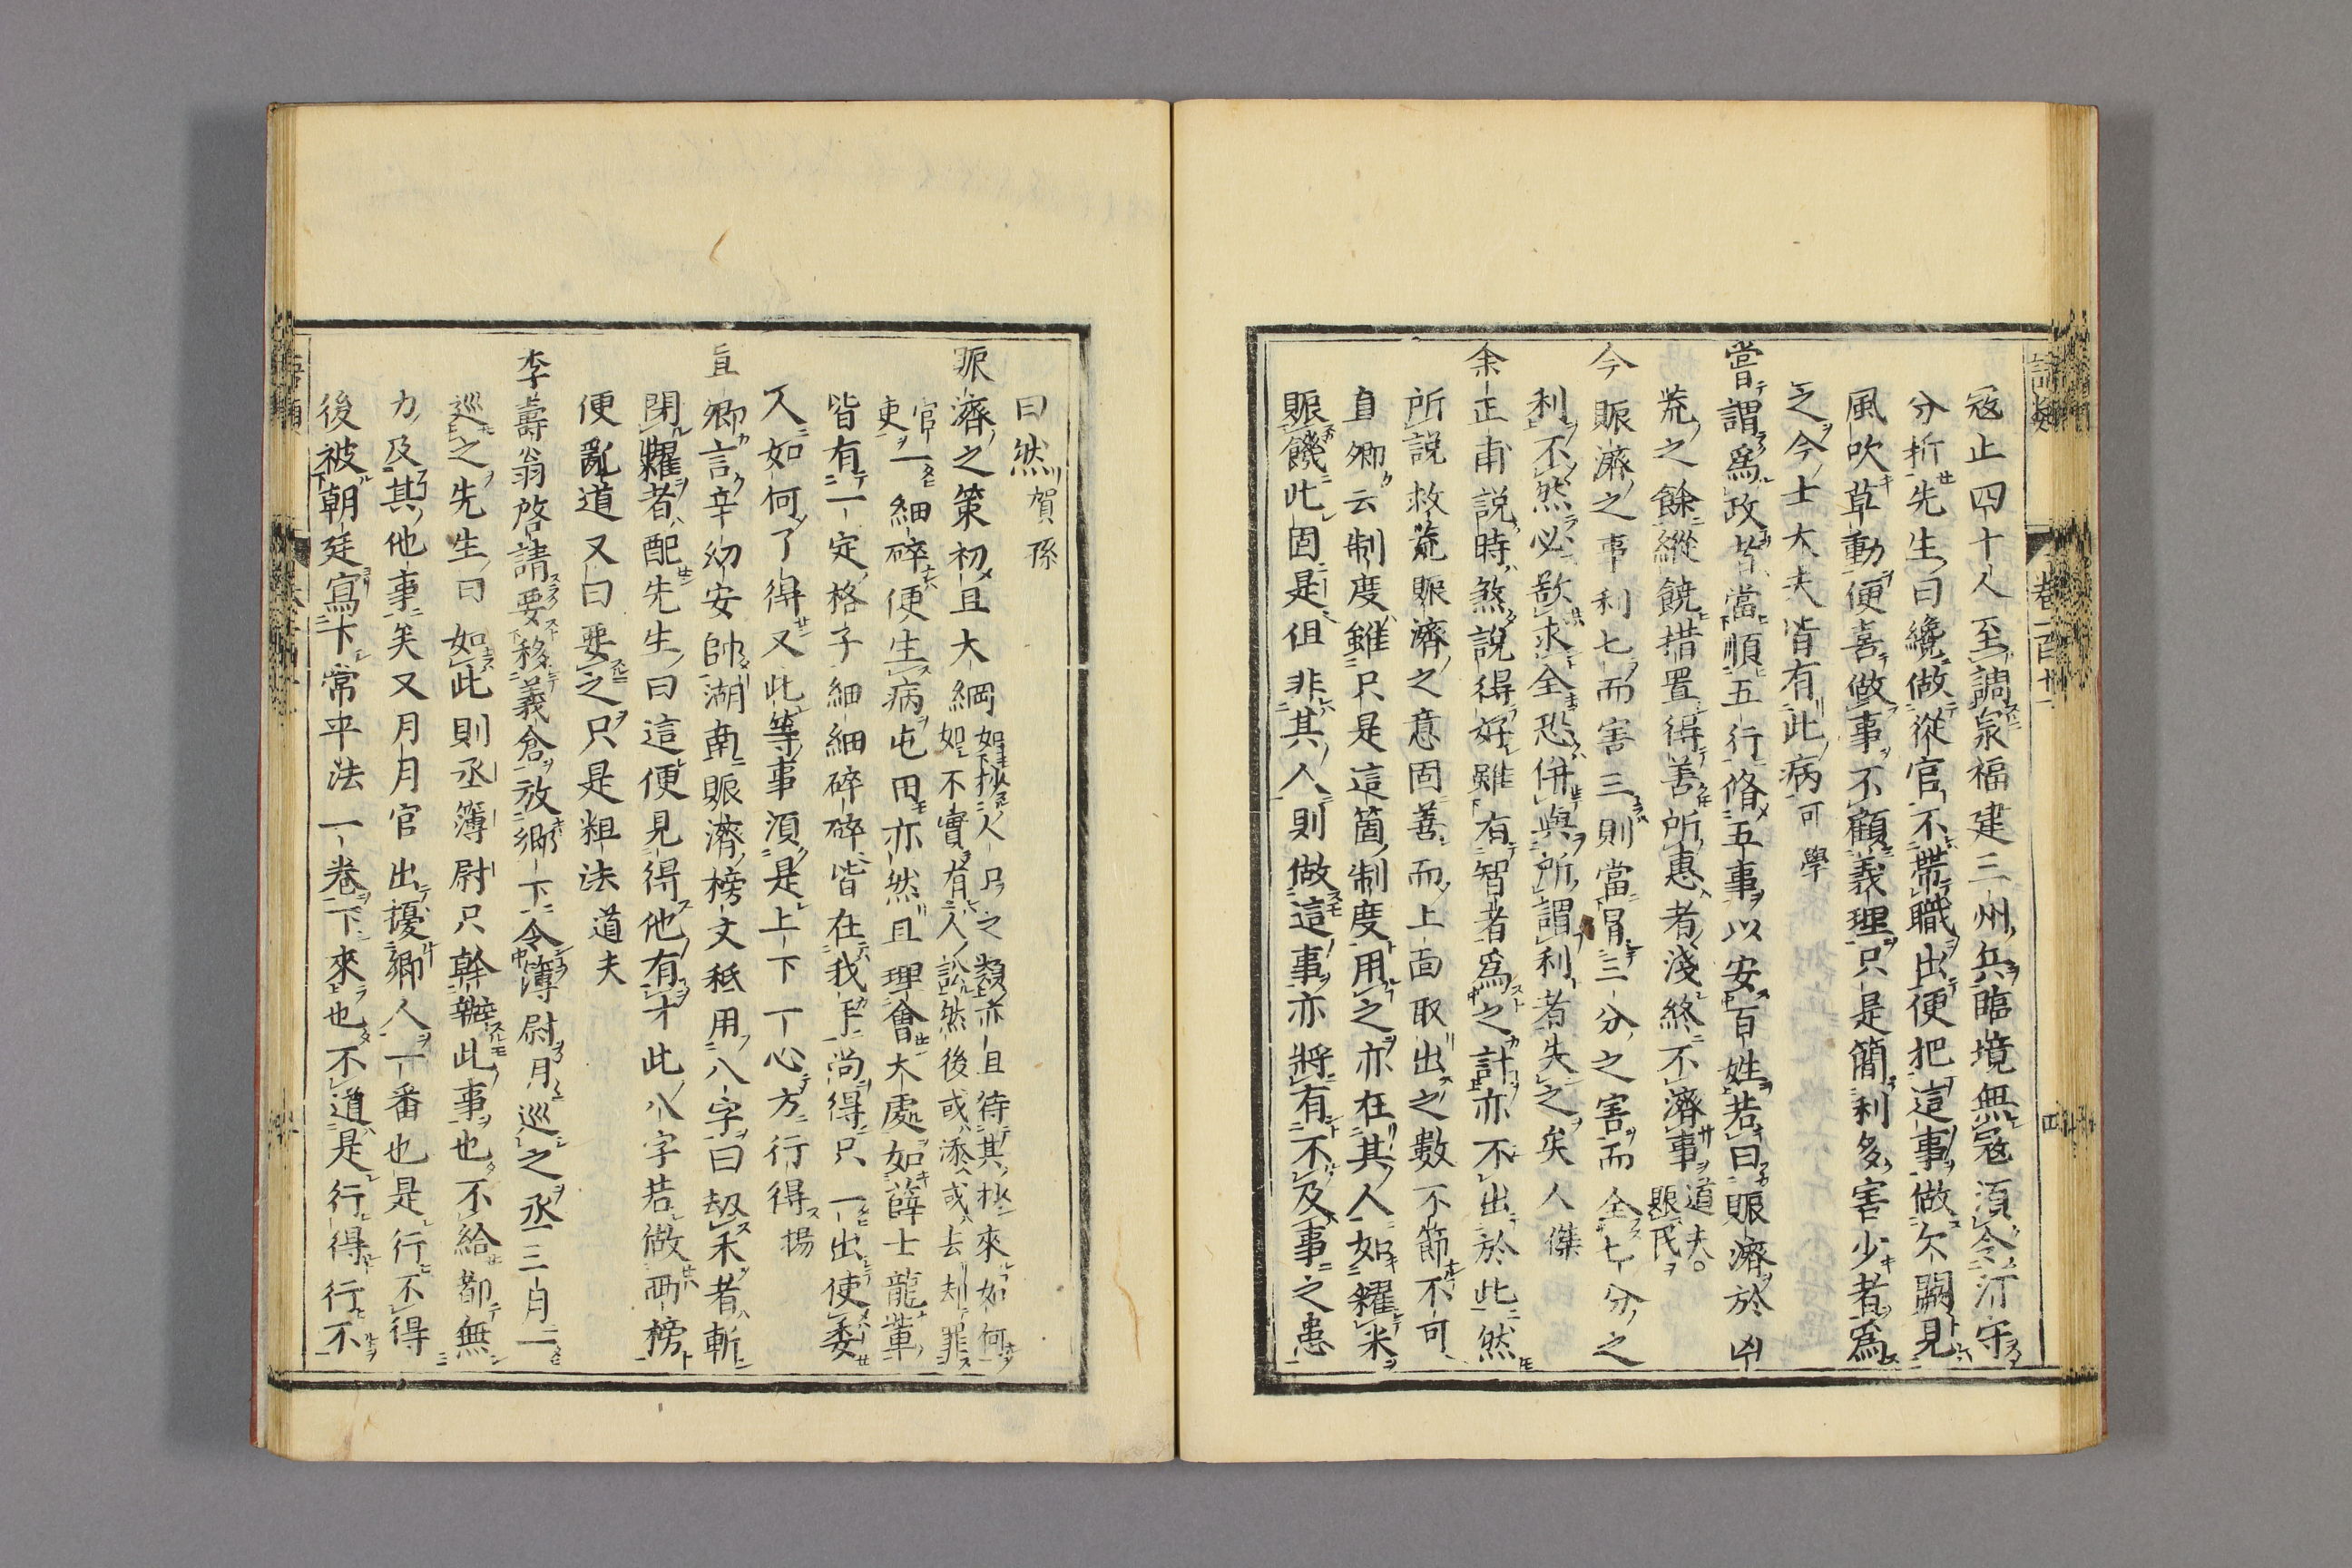 語類
卷百十一
四
寇止四十人至調泉福建三州兵臨境無寇須令汀守
分析先生曰纔做從官不帶職出便把這事做欠闕見
風吹草動便喜做事不顧義理只是簡利多害少者爲
之今士大夫皆有此病可學
嘗謂爲政者當順五行脩五事以安百姓若曰賑濟於凶
荒之餘縱饒措置得善所惠者淺終不濟事道夫○賑民
今賑濟之事利七而害三則當冒三分之害而全七分之
利不然必欲求全恐併與所謂利者失之矣人傑
余正甫說時煞說得好雖有智者爲之計亦不出於此然
所說救荒賑濟之意固善而上面取出之數不節不可
直卿云制度雖只是這箇制度用之亦在其人如糴米
賑饑此固是但非其人則做這事亦將有不及事之患
曰然賀孫
賑濟之策初且大綱如抄人口之類亦且待其抄來如何
如不實有人訟然後或添或去却罪
官吏一細碎便生病屯田亦然且理會大處如薛士龍輩
皆有一定格子細細碎碎皆在我手尚得只一出使委
人如何了得又此等事須是上下一心方行得揚
直卿言辛幼安帥湖南賑濟榜文秪用八字曰刼禾者斬
閉糶者配先生曰這便見得他有才此八字若做兩榜
便亂道又曰要之只是粗法道夫
李壽翁啓請要移義倉放鄉下令簿尉月巡之丞三月一
巡之先生曰如此則丞簿尉只幹辦此事也不給都無
力及其他事矣又月月官出擾鄉人一番也是行不得
後被朝廷寫下常平法一卷下來也不道是行得行不
語類